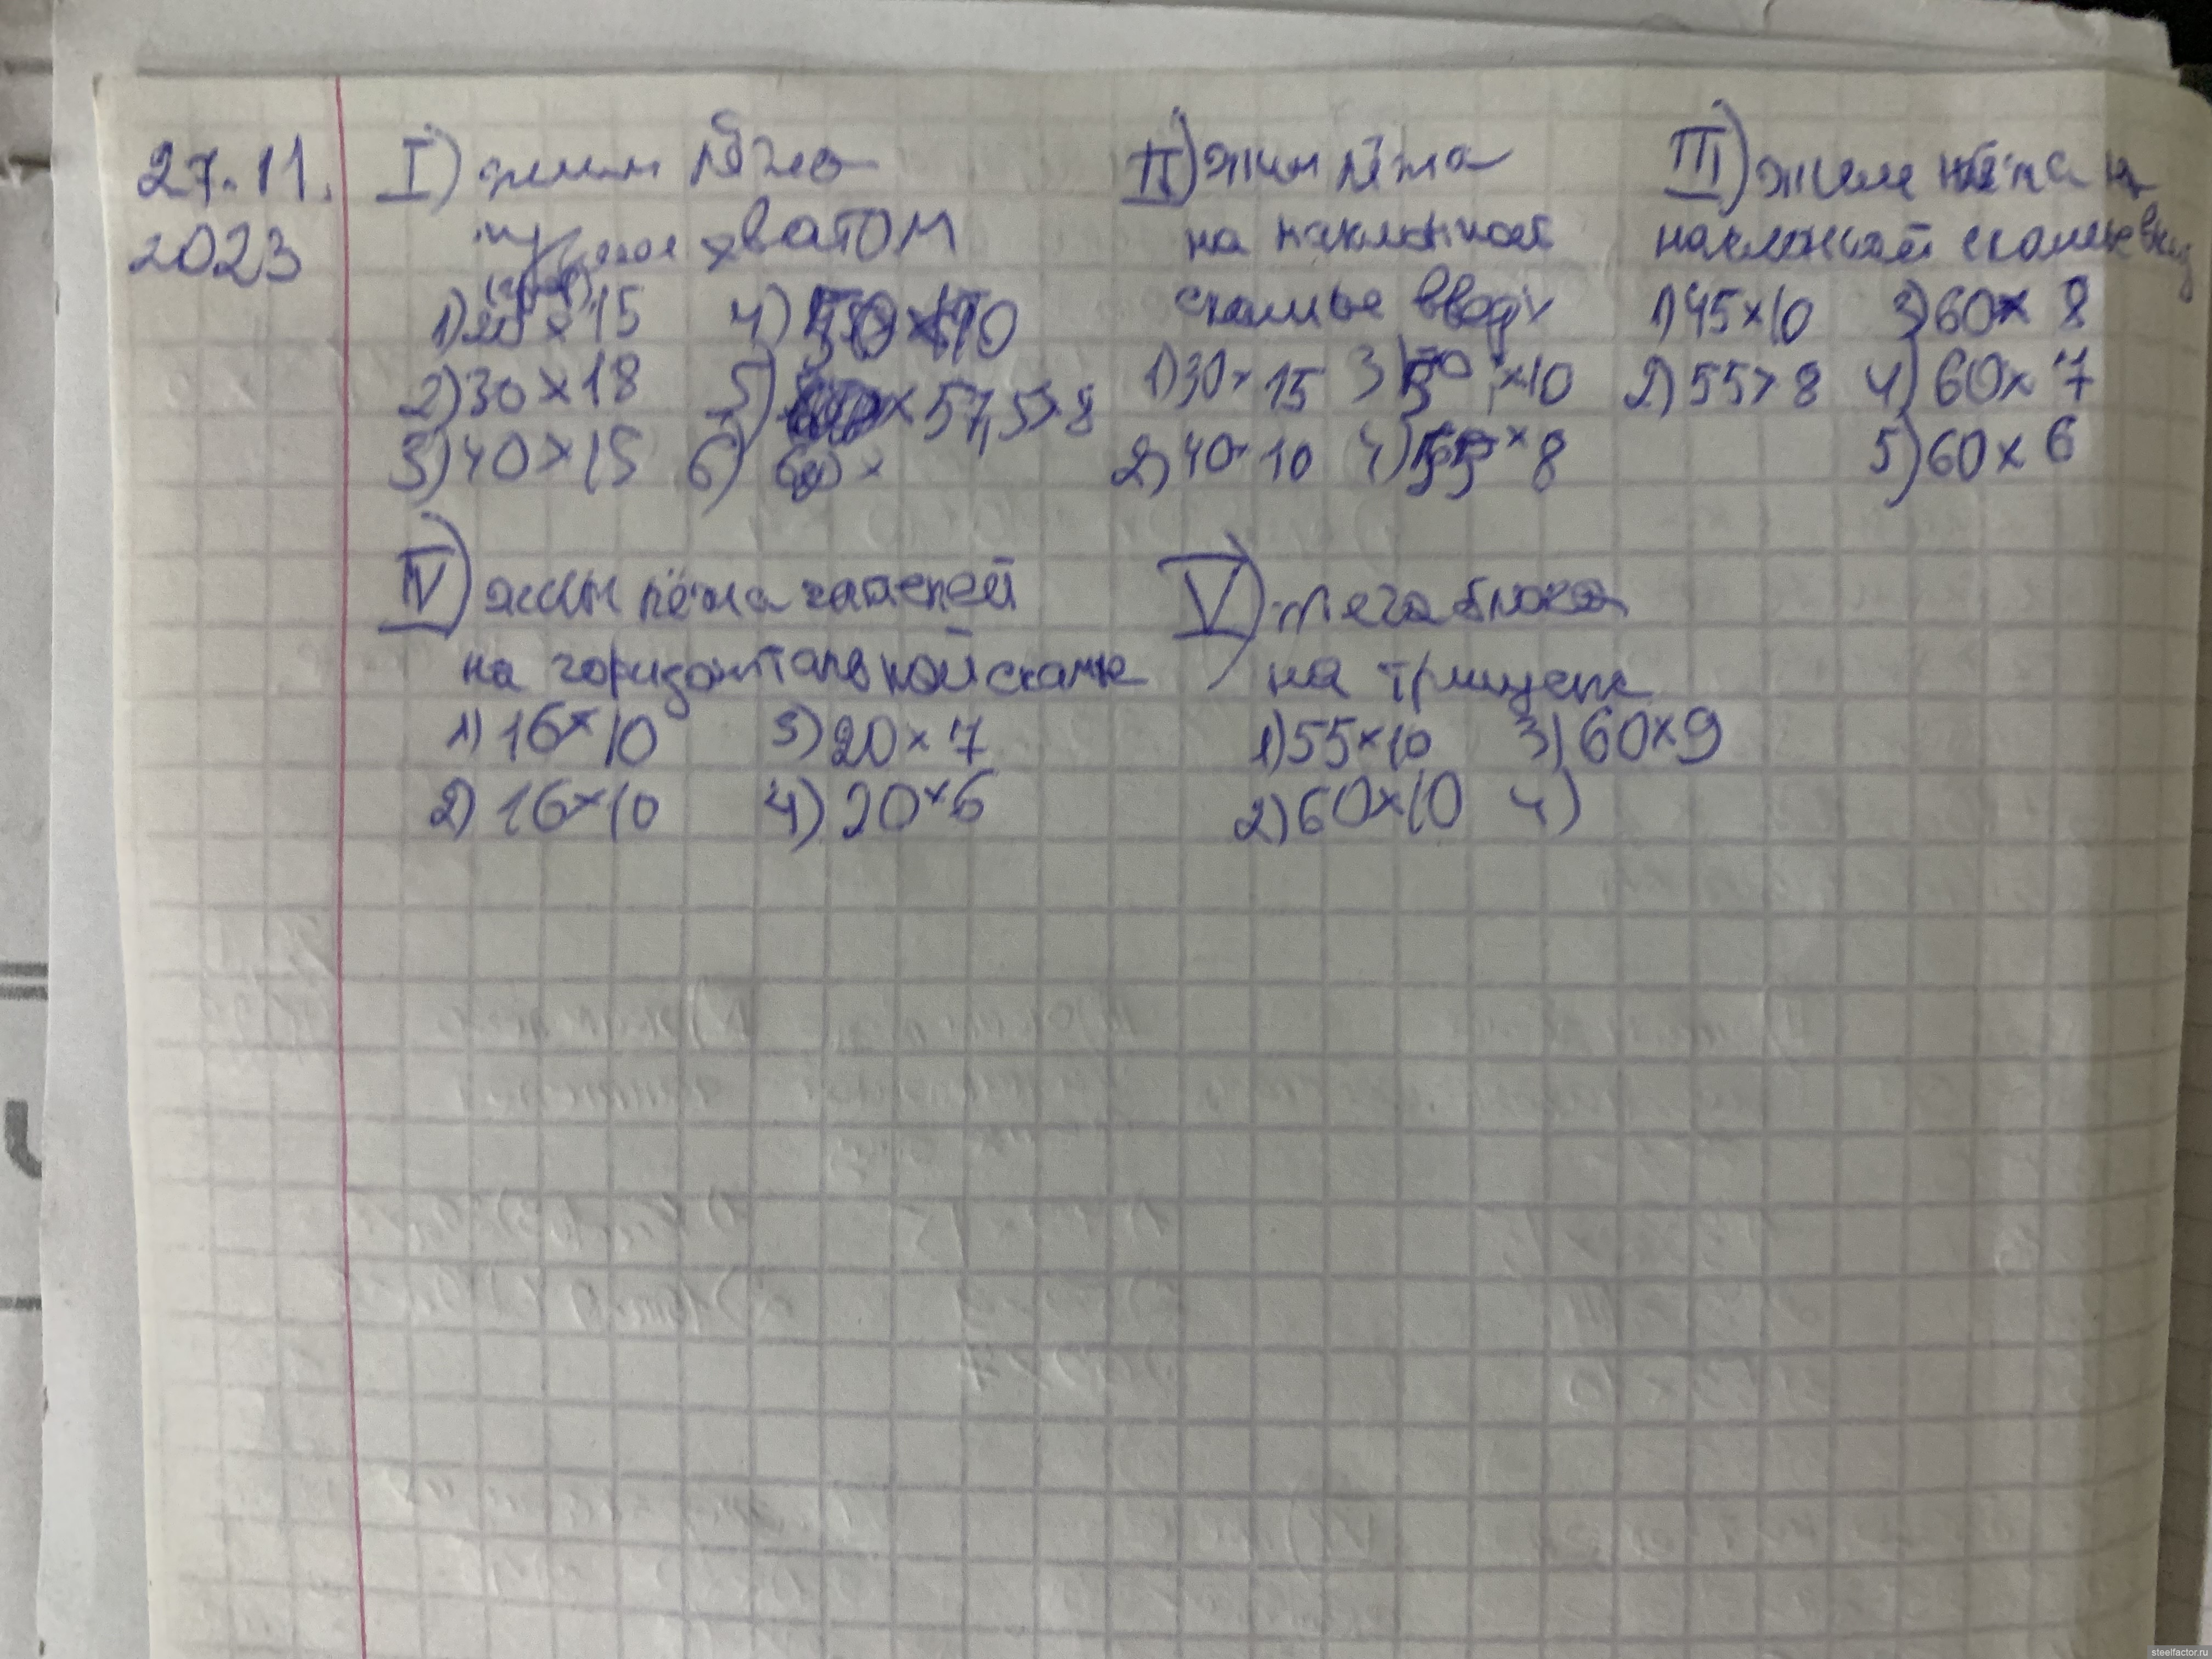 27.11.
2023
I) жим лёжа
хватом
(гриф)
1) 20 x 15
2) 30 x 18
3) 40 x 15
4) 50 x 10
5) x 57,5 x 8
6) 60 x
II) жим лёжа
на наклонной
скамье вверх
1) 30 x 15
2) 40 x 10
3) 50 x 10
4) 55 x 8
III) жим лёжа на
наклонной скамье вниз
1) 45 x 10
2) 55 x 8
3) 60 x 8
4) 60 x 7
5) 60 x 6
IV) жим лёжа гантелей
на горизонтальной скамье
1) 16 x 10
2) 16 x 10
3) 20 x 7
4) 20 x 6
V) тяга блока
на трицепс
1) 55 x 10
2) 60 x 10
3) 60 x 9
4)
steelfactor.ru